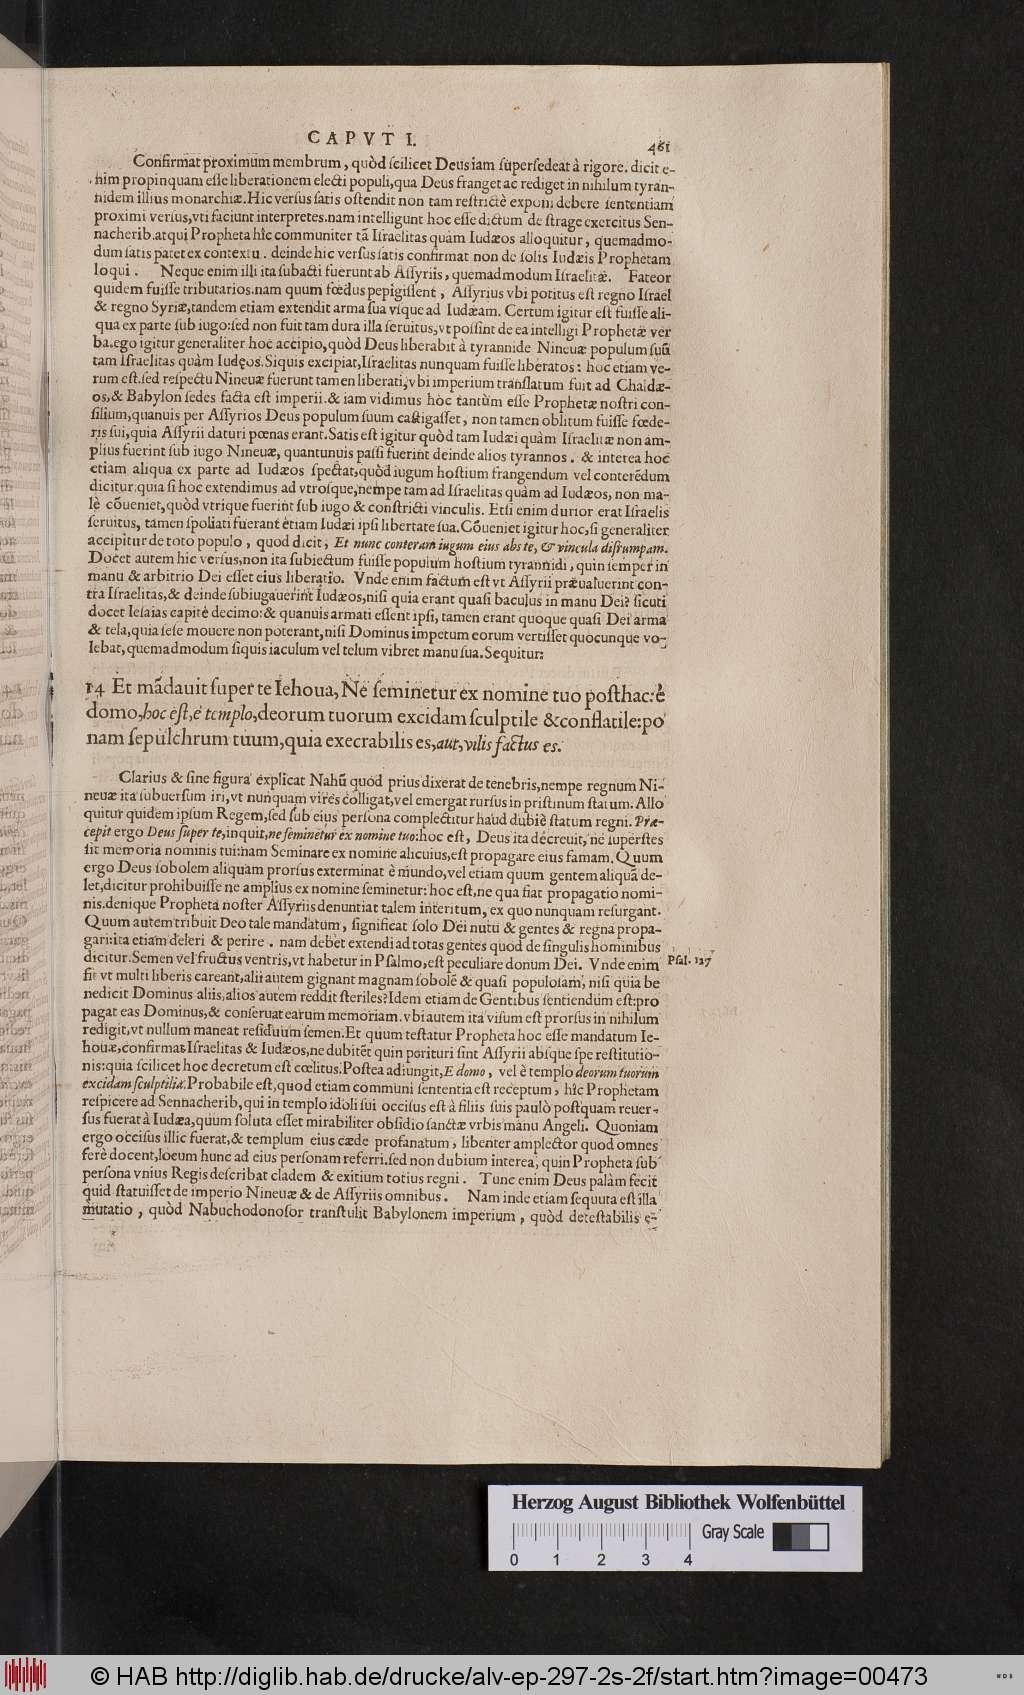 CAPVT I.
461
Confirmat proximum membrum, quòd scilicet Deus iam supersedeat à rigore. dicit e-
nim propinquam esse liberationem electi populi, qua Deus franget ac rediget in nihilum tyran-
nidem illius monarchiæ. Hic versus satis ostendit non tam restrictè exponi debere sententiam
proximi versus, vti faciunt interpretes. nam intelligunt hoc esse dictum de strage exercitus Sen-
nacherib. atqui Propheta hîc communiter tã Israelitas quàm Iudæos alloquitur, quemadmo-
dum satis patet ex contextu. deinde hic versus satis confirmat non de solis Iudæis Prophetam
loqui. Neque enim illi ita subacti fuerunt ab Assyriis, quemadmodum Israelitæ. Fateor
quidem fuisse tributarios. nam quum fœdus pepigissent, Assyrius vbi potitus est regno Israel
& regno Syriæ, tandem etiam extendit arma sua vsque ad Iudæam. Certum igitur est fuisse ali-
qua ex parte sub iugo: sed non fuit tam dura illa seruitus, vt possint de ea intelligi Prophetæ ver
ba. ego igitur generaliter hoc accipio, quòd Deus liberabit à tyrannide Nineuæ populum suũ
tam Israelitas quàm Iudęos. Siquis excipiat, Israelitas nunquam fuisse liberatos: hoc etiam ve-
rum est. sed respectu Nineuæ fuerunt tamen liberati, vbi imperium translatum fuit ad Chaldæ-
os, & Babylon sedes facta est imperii. & iam vidimus hoc tantùm esse Prophetæ nostri con-
silium, quanuis per Assyrios Deus populum suum castigasset, non tamen oblitum fuisse fœde-
ris sui, quia Assyrii daturi pœnas erant. Satis est igitur quòd tam Iudæi quàm Israelitæ non am-
plius fuerint sub iugo Nineuæ, quantunuis passi fuerint deinde alios tyrannos. & interea hoc
etiam aliqua ex parte ad Iudæos spectat, quòd iugum hostium frangendum vel conterẽdum
dicitur: quia si hoc extendimus ad vtrosque, nempe tam ad Israelitas quàm ad Iudæos, non ma-
lè cõueniet, quòd vtrique fuerint sub iugo & constricti vinculis. Etsi enim durior erat Israelis
seruitus, tamen spoliati fuerant etiam Iudæi ipsi libertate sua. Cõueniet igitur hoc, si generaliter
accipitur de toto populo, quod dicit, Et nunc conteram iugum eius abs te, & vincula disrumpam.
Docet autem hic versus, non ita subiectum fuisse populum hostium tyrannidi, quin semper in
manu & arbitrio Dei esset eius liberatio. Vnde enim factum est vt Assyrii præualuerint con-
tra Israelitas, & deinde subiugauerint Iudæos, nisi quia erant quasi baculus in manu Dei? sicuti
docet Iesaias capite decimo: & quanuis armati essent ipsi, tamen erant quoque quasi Dei arma
& tela, quia sese mouere non poterant, nisi Dominus impetum eorum vertisset quocunque vo-
lebat, quemadmodum siquis iaculum vel telum vibret manu sua. Sequitur:
14 Et mãdauit super te Iehoua, Ne seminetur ex nomine tuo posthac: è
domo, hoc est, è templo, deorum tuorum excidam sculptile & conflatile: po
nam sepulchrum tuum, quia execrabilis es, aut, vilis factus es.
Clarius & sine figura explicat Nahũ quod prius dixerat de tenebris, nempe regnum Ni-
neuæ ita subuersum iri, vt nunquam vires colligat, vel emergat rursus in pristinum statum. Allo
quitur quidem ipsum Regem, sed sub eius persona complectitur haud dubiè statum regni. Præ-
cepit ergo Deus super te, inquit, ne seminetur ex nomine tuo: hoc est, Deus ita decreuit, ne superstes
sit memoria nominis tui: nam Seminare ex nomine alicuius, est propagare eius famam. Quum
ergo Deus sobolem aliquam prorsus exterminat è mundo, vel etiam quum gentem aliquã de-
let, dicitur prohibuisse ne amplius ex nomine seminetur: hoc est, ne qua fiat propagatio nomi-
nis. denique Propheta noster Assyriis denuntiat talem interitum, ex quo nunquam resurgant.
Quum autem tribuit Deo tale mandatum, significat solo Dei nutu & gentes & regna propa-
gari: ita etiam deleri & perire. nam debet extendi ad totas gentes quod de singulis hominibus
dicitur. Semen vel fructus ventris, vt habetur in Psalmo, est peculiare donum Dei. Vnde enim
Psal. 127
fit vt multi liberis careant, alii autem gignant magnam sobolẽ & quasi populosam, nisi quia be
nedicit Dominus aliis, alios autem reddit steriles? Idem etiam de Gentibus sentiendum est: pro
pagat eas Dominus, & conseruat earum memoriam. vbi autem ita visum est prorsus in nihilum
redigit, vt nullum maneat residuum semen. Et quum testatur Propheta hoc esse mandatum Ie-
houæ, confirmat Israelitas & Iudæos, ne dubitẽt quin perituri sint Assyrii absque spe restitutio-
nis: quia scilicet hoc decretum est cœlitus. Postea adiungit, E domo, vel è templo deorum tuorum
excidam sculptilia. Probabile est, quod etiam communi sententia est receptum, hîc Prophetam
respicere ad Sennacherib, qui in templo idoli sui occisus est à filiis suis paulò postquam reuer-
sus fuerat à Iudæa, quum soluta esset mirabiliter obsidio sanctæ vrbis manu Angeli. Quoniam
ergo occisus illic fuerat, & templum eius cæde profanatum, libenter amplector quod omnes
ferè docent, locum hunc ad eius personam referri. sed non dubium interea, quin Propheta sub
persona vnius Regis describat cladem & exitium totius regni. Tunc enim Deus palàm fecit
quid statuisset de imperio Nineuæ & de Assyriis omnibus. Nam inde etiam sequuta est illa
mutatio, quòd Nabuchodonosor transtulit Babylonem imperium, quòd detestabilis e-
Herzog August Bibliothek Wolfenbüttel
Gray Scale
0 1 2 3 4
© HAB http://diglib.hab.de/drucke/alv-ep-297-2s-2f/start.htm?image=00473
WDB